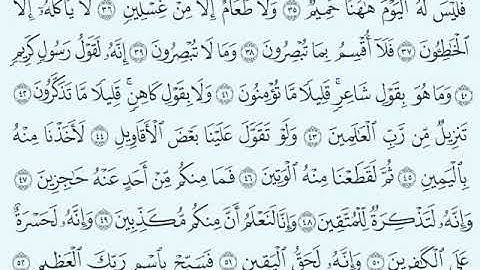 فَلَيْسَ لَهُ ٱلْيَوْمَ هَٰهُنَا حَمِيمٌ ٣٥ وَلَا طَعَامٌ إِلَّا مِنْ غِسْلِينٍ ٣٦ لَّا يَأْكُلُهُۥٓ إِلَّا
ٱلْخَٰطِـُٔونَ ٣٧ فَلَآ أُقْسِمُ بِمَا تُبْصِرُونَ ٣٨ وَمَا لَا تُبْصِرُونَ ٣٩ إِنَّهُۥ لَقَوْلُ رَسُولٍ كَرِيمٍ
٤٠ وَمَا هُوَ بِقَوْلِ شَاعِرٍ ۚ قَلِيلًا مَّا تُؤْمِنُونَ ٤١ وَلَا بِقَوْلِ كَاهِنٍ ۚ قَلِيلًا مَّا تَذَكَّرُونَ ٤٢
تَنزِيلٌ مِّن رَّبِّ ٱلْعَٰلَمِينَ ٤٣ وَلَوْ تَقَوَّلَ عَلَيْنَا بَعْضَ ٱلْأَقَاوِيلِ ٤٤ لَأَخَذْنَا مِنْهُ
بِٱلْيَمِينِ ٤٥ ثُمَّ لَقَطَعْنَا مِنْهُ ٱلْوَتِينَ ٤٦ فَمَا مِنكُم مِّنْ أَحَدٍ عَنْهُ حَٰجِزِينَ ٤٧
وَإِنَّهُۥ لَتَذْكِرَةٌ لِّلْمُتَّقِينَ ٤٨ وَإِنَّا لَنَعْلَمُ أَنَّ مِنكُم مُّكَذِّبِينَ ٤٩ وَإِنَّهُۥ لَحَسْرَةٌ
عَلَى ٱلْكَٰفِرِينَ ٥٠ وَإِنَّهُۥ لَحَقُّ ٱلْيَقِينِ ٥١ فَسَبِّحْ بِٱسْمِ رَبِّكَ ٱلْعَظِيمِ ٥٢